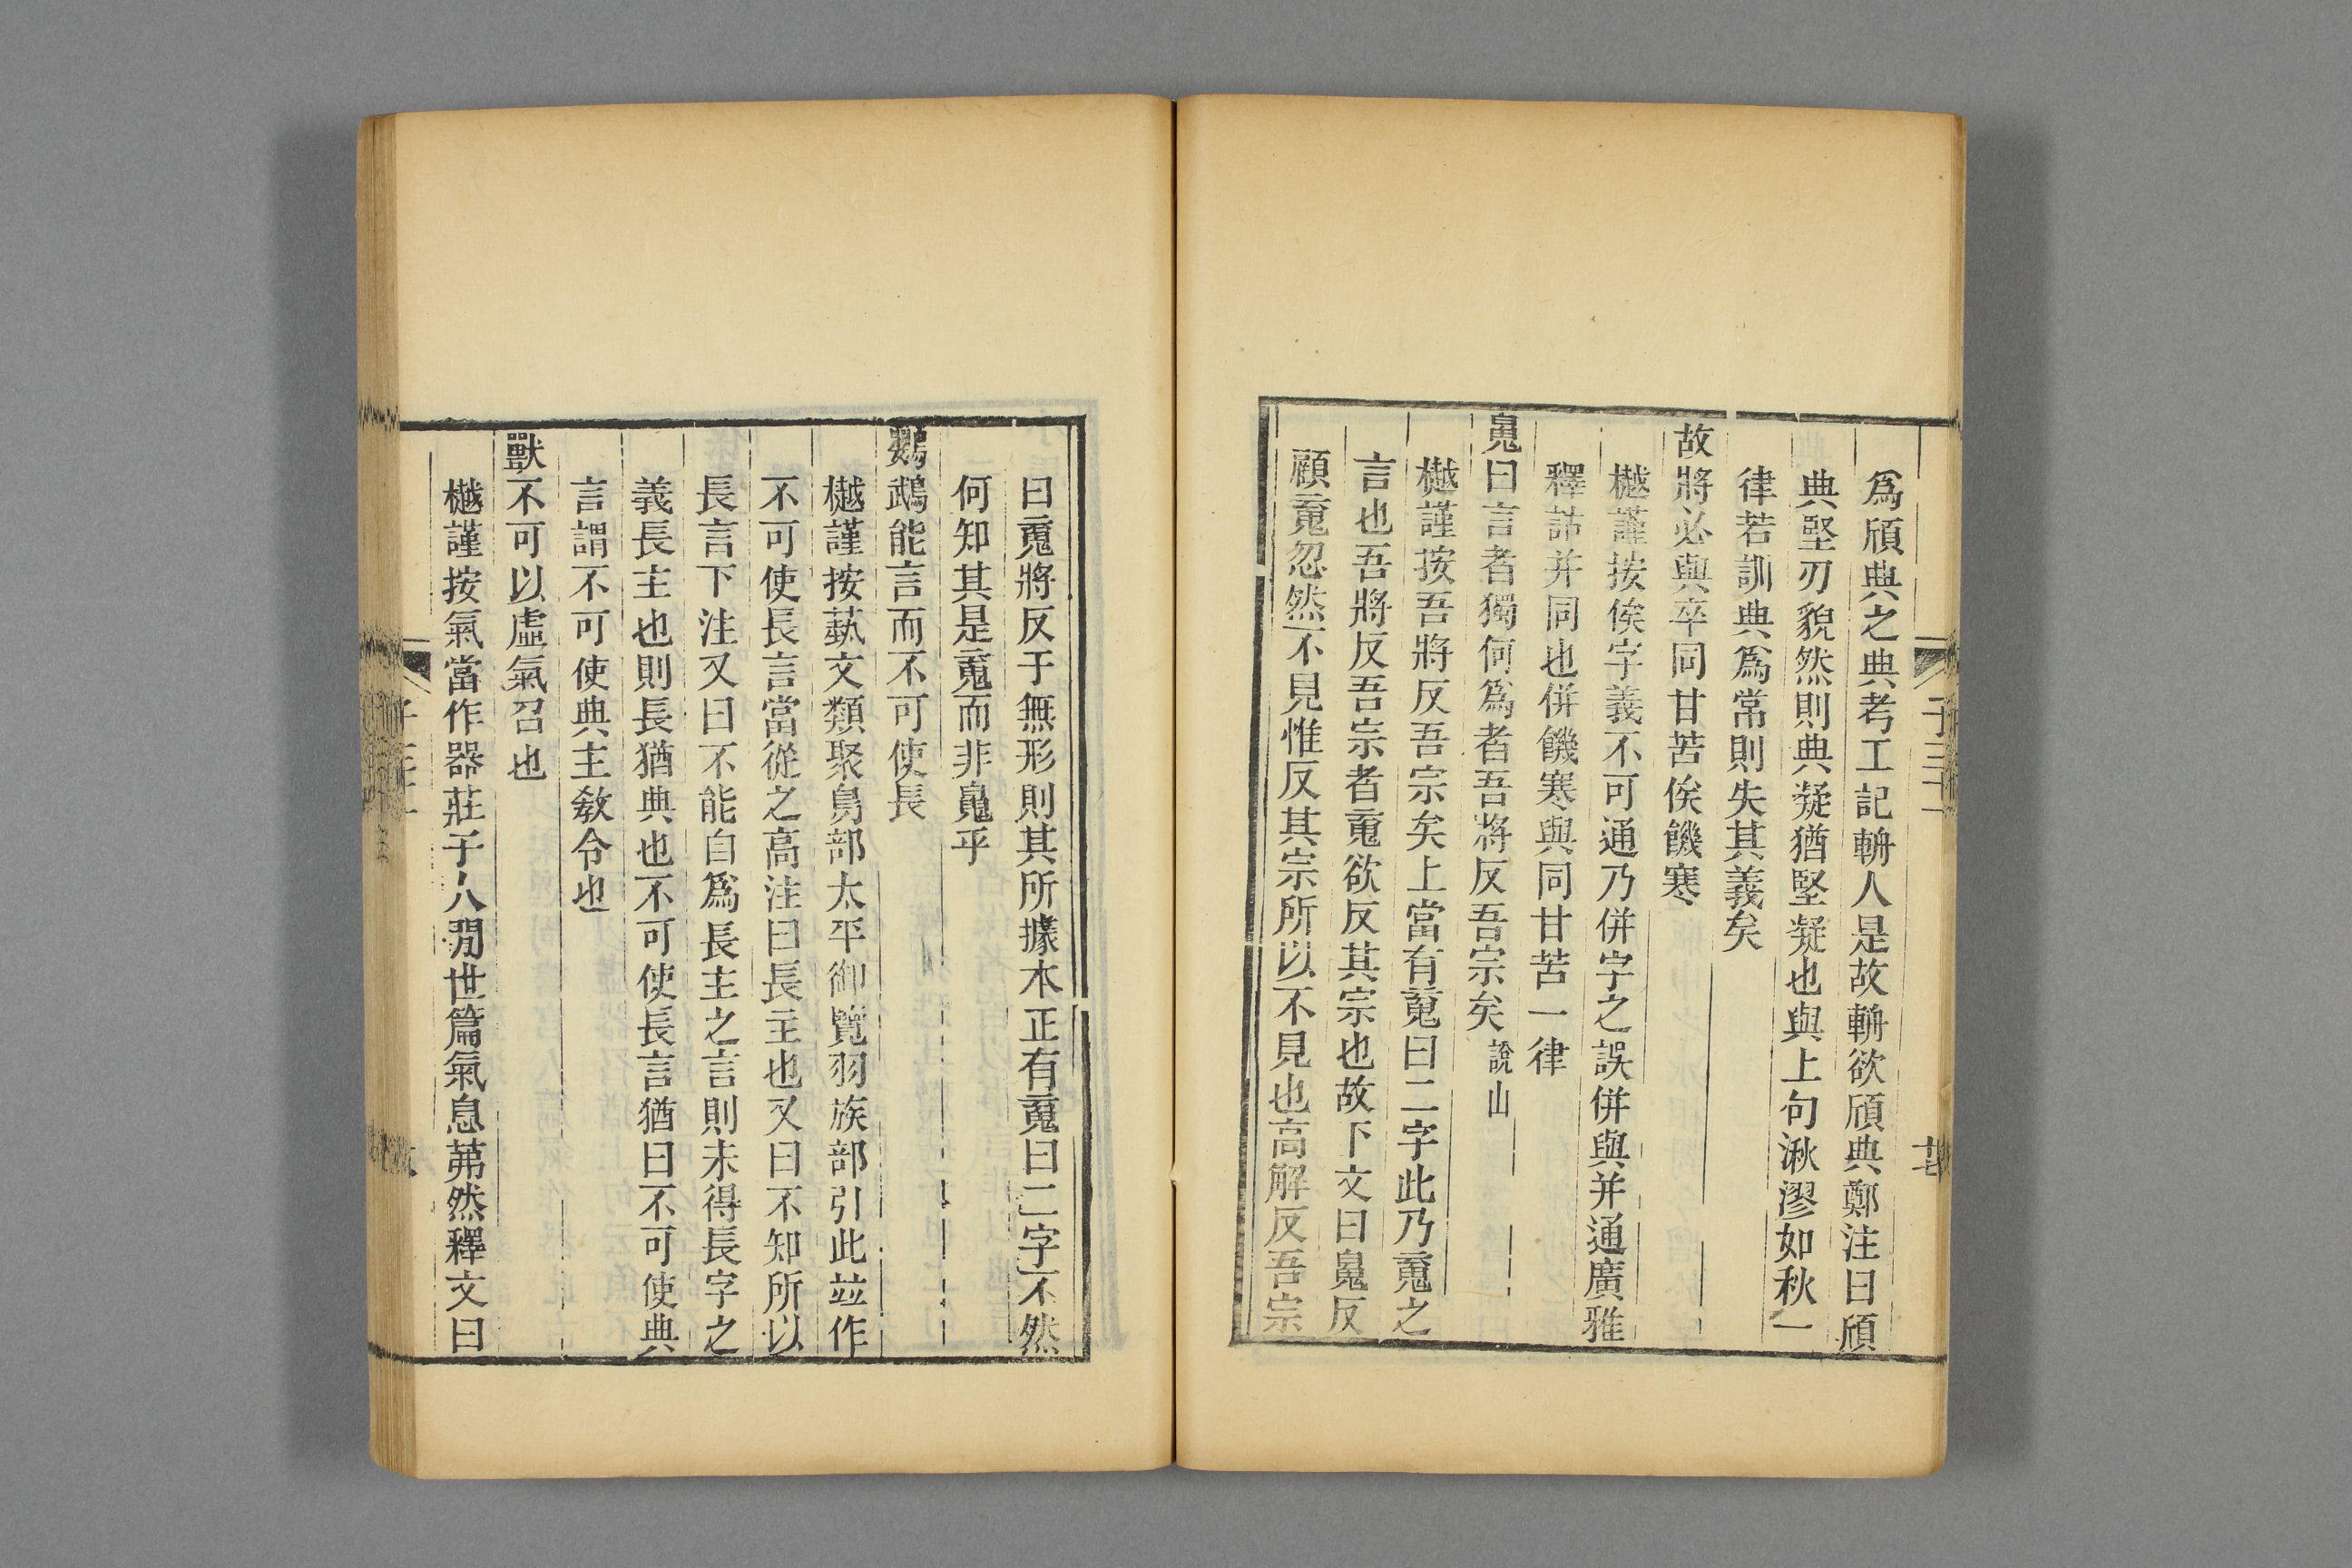 爲頎典之典考工記輈人是故輈欲頎典鄭注曰頎
典堅刃貌然則典凝猶堅凝也與上句湫漻如秋一
律若訓典爲常則失其義矣
故將必與卒同甘苦俟饑寒
樾謹按俟字義不可通乃併字之誤併與并通廣雅
釋詁并同也併饑寒與同甘苦一律
䰟曰言者獨何爲者吾將反吾宗矣說山
樾謹按吾將反吾宗矣上當有䰠曰二字此乃䰠之
言也吾將反吾宗者䰠欲反其宗也故下文曰䰟反
顧䰠忽然不見惟反其宗所以不見也高解反吾宗
子三十一
曰䰠將反于無形則其所據本正有䰠曰二字不然
何知其是䰠而非䰟乎
鸚鵡能言而不可使長
樾謹按蓺文類聚鳥部太平御覽羽族部引此竝作
不可使長言當從之高注曰長主也又曰不知所以
長言下注又曰不能自爲長主之言則未得長字之
義長主也則長猶典也不可使長言猶曰不可使典
言謂不可使典主敎令也
獸不可以虛氣召也
樾謹按氣當作器莊子人閒世篇氣息茀然釋文曰